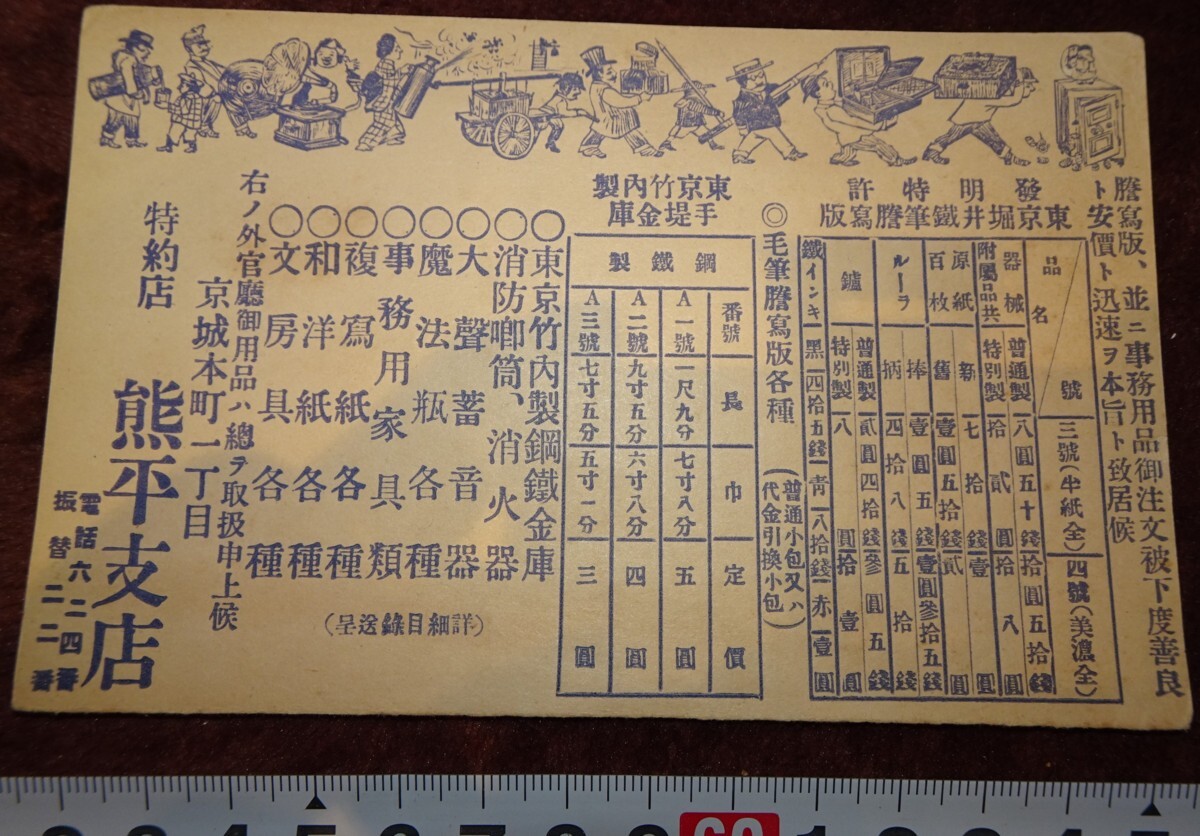 謄寫版、並ニ事務用品御注文被下度善良
ト安價ト迅速ヲ本旨ト致居候
發明特許
東京堀井鐵筆謄寫版
品名
號
三號(半紙全)
四號(美濃全)
器械
普通製
八圓五十錢
拾圓五拾錢
附屬品共
特別製
拾貳圓
拾八圓
原紙
百枚
新
七拾錢
壹圓
舊
壹圓五拾錢
貳圓
ルーラ
捧
壹圓五錢
壹圓參拾五錢
柄
四拾八錢
五拾錢
鑢
普通製
貳圓四拾錢
參圓五錢
特別製
八圓
拾壹圓
鐵インキ
黑
四拾五錢
靑
八拾錢
赤
壹圓
◎毛筆謄寫版各種
(普通小包又ハ
代金引換小包)
東京竹內製
手堤金庫
鋼鐵製
番號
長
巾
定價
A一號
一尺九分
七寸八分
五圓
A二號
九寸五分
六寸八分
四圓
A三號
七寸五分
五寸一分
三圓
○東京竹內製鋼鐵金庫
○消防喞筒、消火器
○大聲蓄音器
○魔法瓶各種
○事務用家具類
○複寫紙各種
○和洋紙各種
○文房具各種
(詳細目錄送呈)
右ノ外官廳御用品ハ總ヲ取扱申上候
京城本町一丁目
特約店
熊平支店
電話六二四番
振替二二番